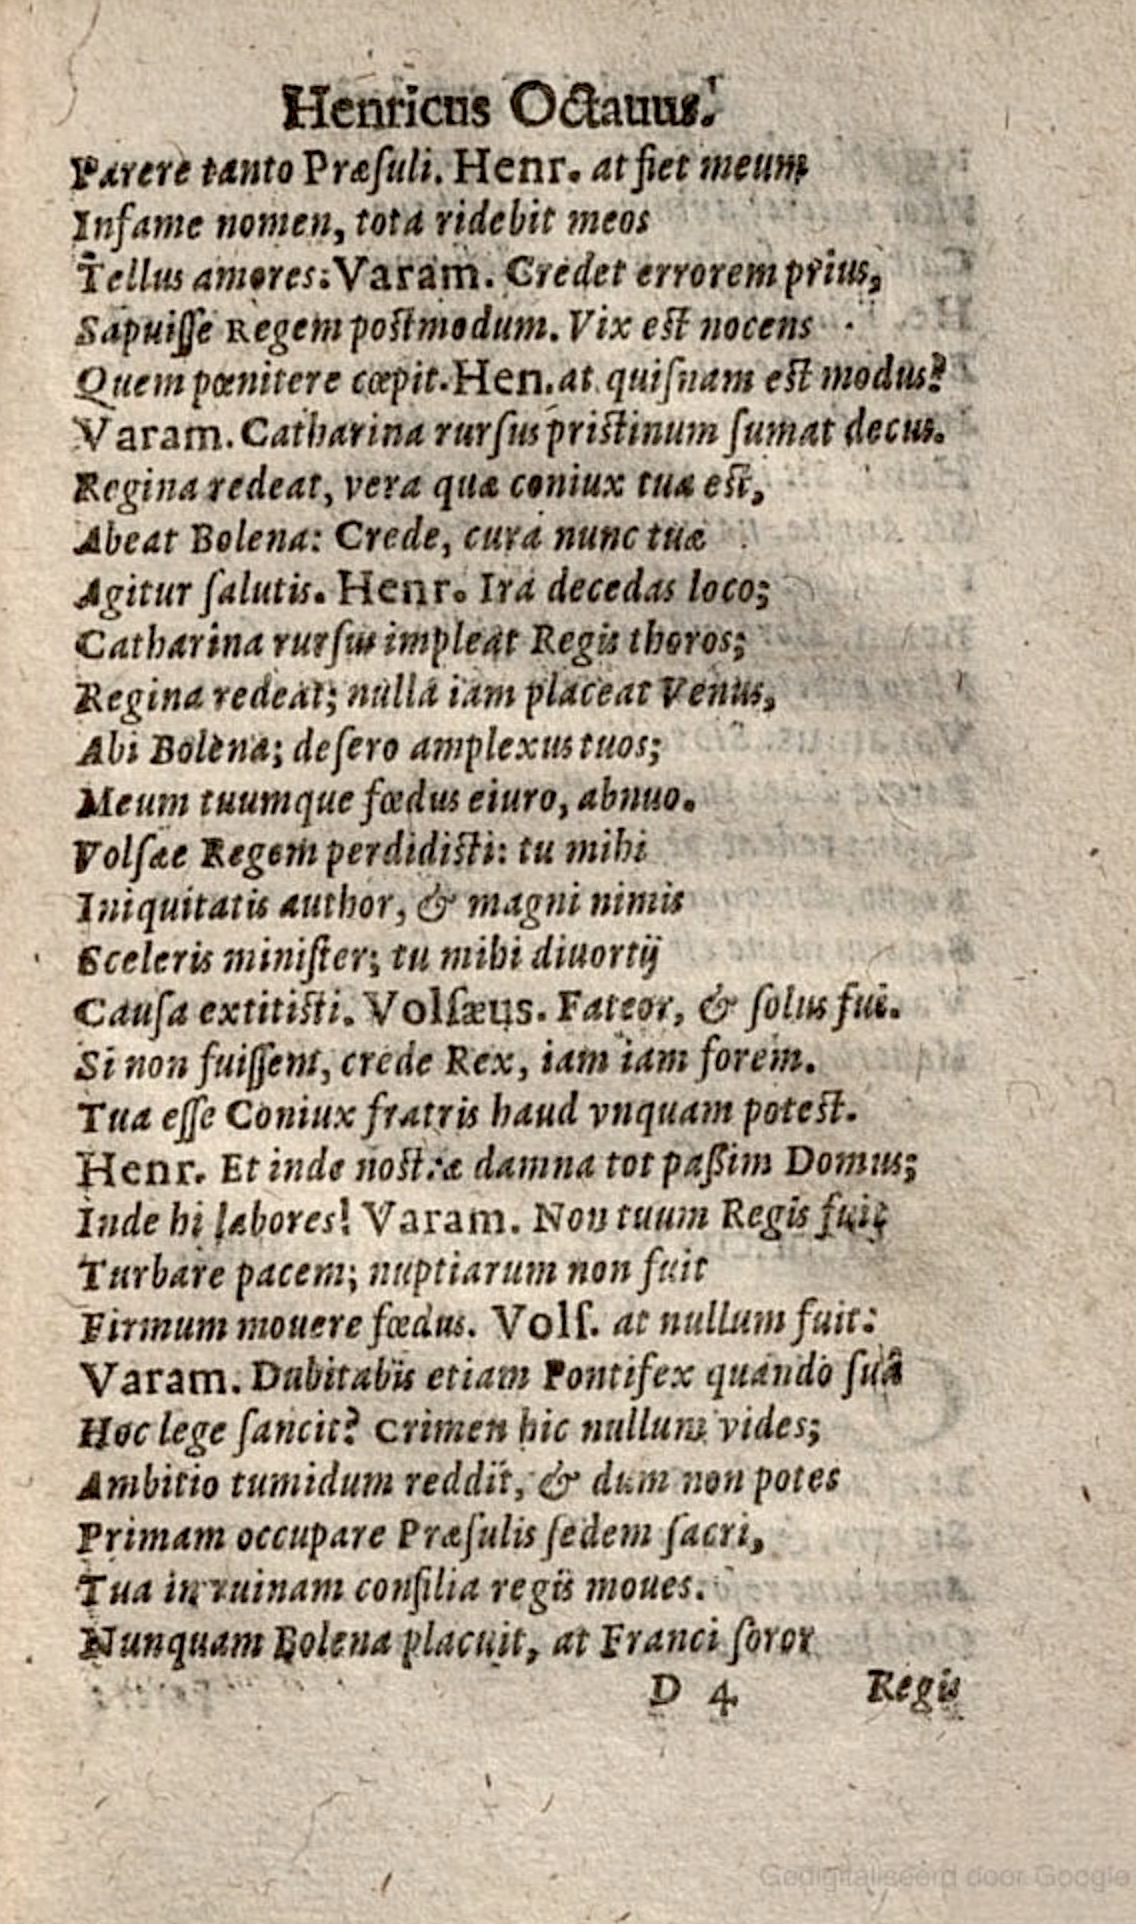 Henricus Octauus.
Parere tanto Præſuli. Henr. at fiet meum
Infame nomen, tota ridebit meos
Tellus amores: Varam. Credet errorem prius,
Sapuiſſe Regem poſtmodum. Vix eſt nocens
Quem pœnitere cœpit. Hen. at quiſnam eſt modus?
Varam. Catharina rurſus priſtinum ſumat decus.
Regina redeat, vera quæ coniux tua eſt,
Abeat Bolena: Crede, cura nunc tuæ
Agitur ſalutis. Henr. Ira decedas loco;
Catharina rurſus impleat Regis thoros;
Regina redeat; nulla iam placeat Venus,
Abi Bolena; deſero amplexus tuos;
Meum tuumque fœdus eiuro, abnuo.
Volſæe Regem perdidiſti: tu mihi
Iniquitatis author, & magni nimis
Sceleris miniſter; tu mihi diuortij
Cauſa extitiſti. Volſæus. Fateor, & ſolus fui.
Si non fuiſſem, crede Rex, iam iam forem.
Tua eſſe Coniux fratris haud vnquam poteſt.
Henr. Et inde noſtræ damna tot paßim Domus;
Inde hi labores! Varam. Non tuum Regis fuit
Turbare pacem; nuptiarum non fuit
Firmum mouere fœdus. Volſ. at nullum fuit:
Varam. Dubitabis etiam Pontifex quando ſuâ
Hoc lege ſancit? Crimen hic nullum vides;
Ambitio tumidum reddit, & dum non potes
Primam occupare Præſulis ſedem ſacri,
Tua in ruinam conſilia regis moues.
Nunquam Bolena placuit, at Franci ſoror
D 4 Regis
Gedigitaliseerd door Google